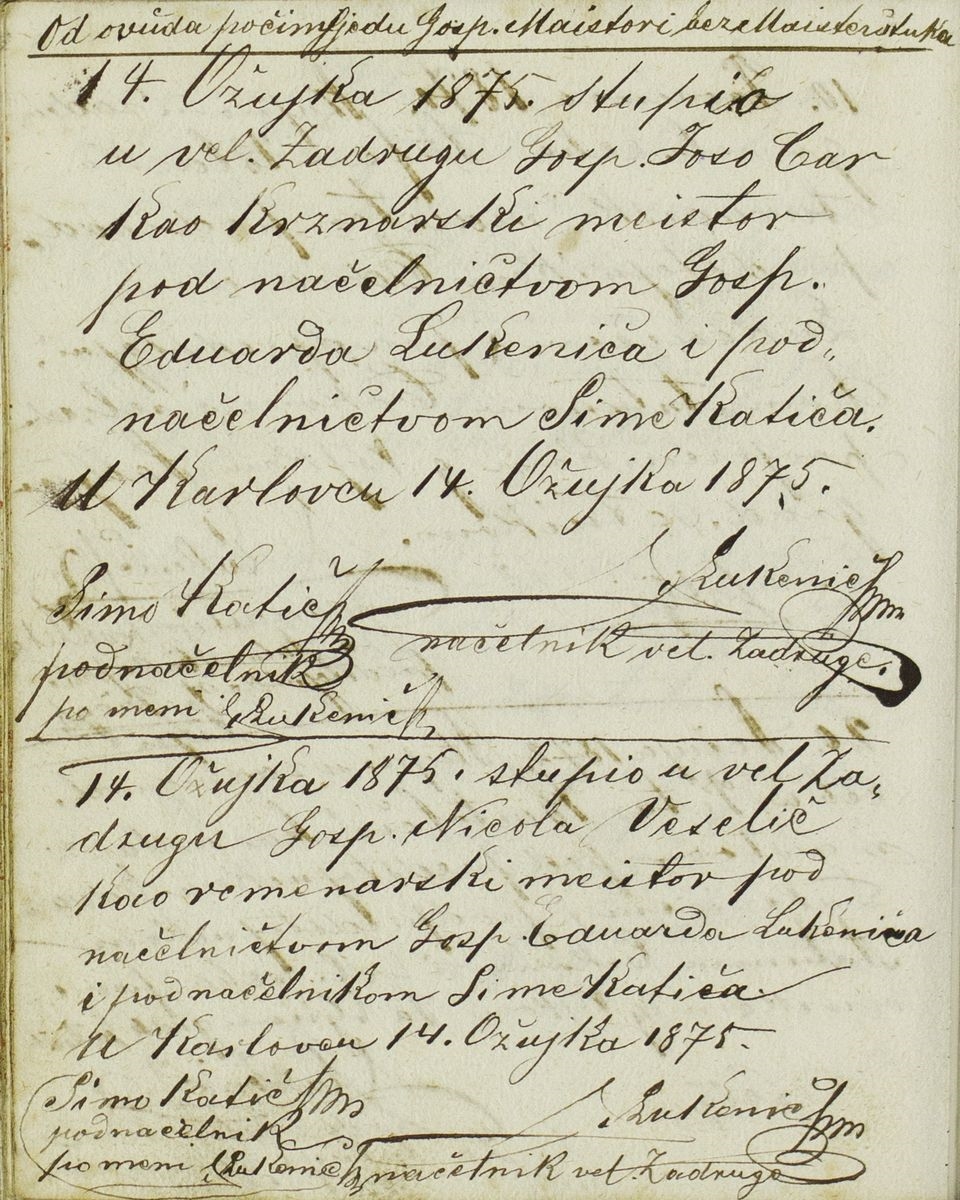 Od ovuda počimljedu Gosp. Maistori bez Maisterštuka
14. Ožujka 1875. stupio
u vel. Zadrugu Gosp. Joso Car
kao Krznarski meistor
pod načelničtvom Gosp.
Eduarda Lukenića i pod„
načelničtvom Sime Katića.
U Karlovcu 14. Ožujka 1875.
Simo Katić
podnačelnik
po meni Lukenić
Lukenić
načelnik vel. Zadruge.
14. Ožujka 1875. stupio u vel Za„
drugu Gosp. Nicola Veselić
kao remenarski meistor pod
načelničtvom Gosp. Eduarda Lukenića
i podnačelnikom Sime Katića.
U Karlovcu 14. Ožujka 1875.
Simo Katić
podnačelnik
po meni Lukenić
Lukenić
načelnik vel. Zadruge